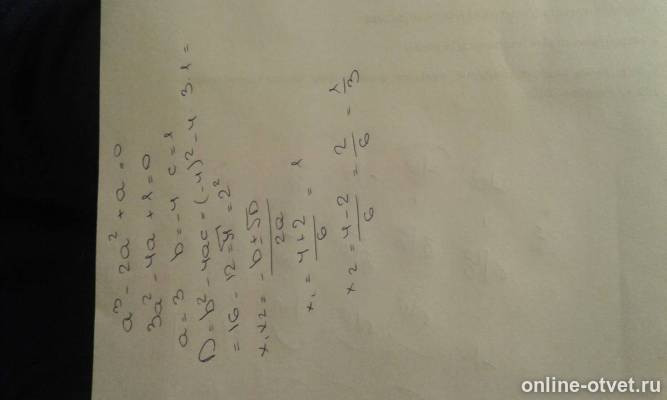 a³ - 2a² + a = 0
3a² - 4a + 1 = 0
a = 3 b = -4 c = 1
D = b² - 4ac = (-4)² - 4 3·1 =
= 16 - 12 = √4 = 2²
x₁x₂ = -b±√D / 2a
x₁ = 4+2 / 6 = 1
x₂ = 4-2 / 6 = 2 / 6 = 1 / 3
online-otvet.ru